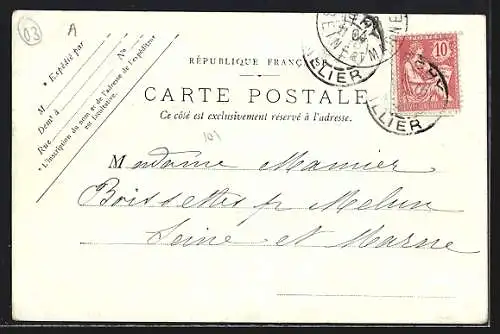 03
A
* Expédié par
N°
M
Dem<sup>t</sup> à
Rue
* L'inscription du nom et de l'adresse de l'expéditeur
est facultative.
RÉPUBLIQUE FRANÇAISE
CARTE POSTALE
Ce côté est exclusivement réservé à l'adresse.
10
LLIER
Madame Mamier
Boissettes pr Melun
Seine et Marne